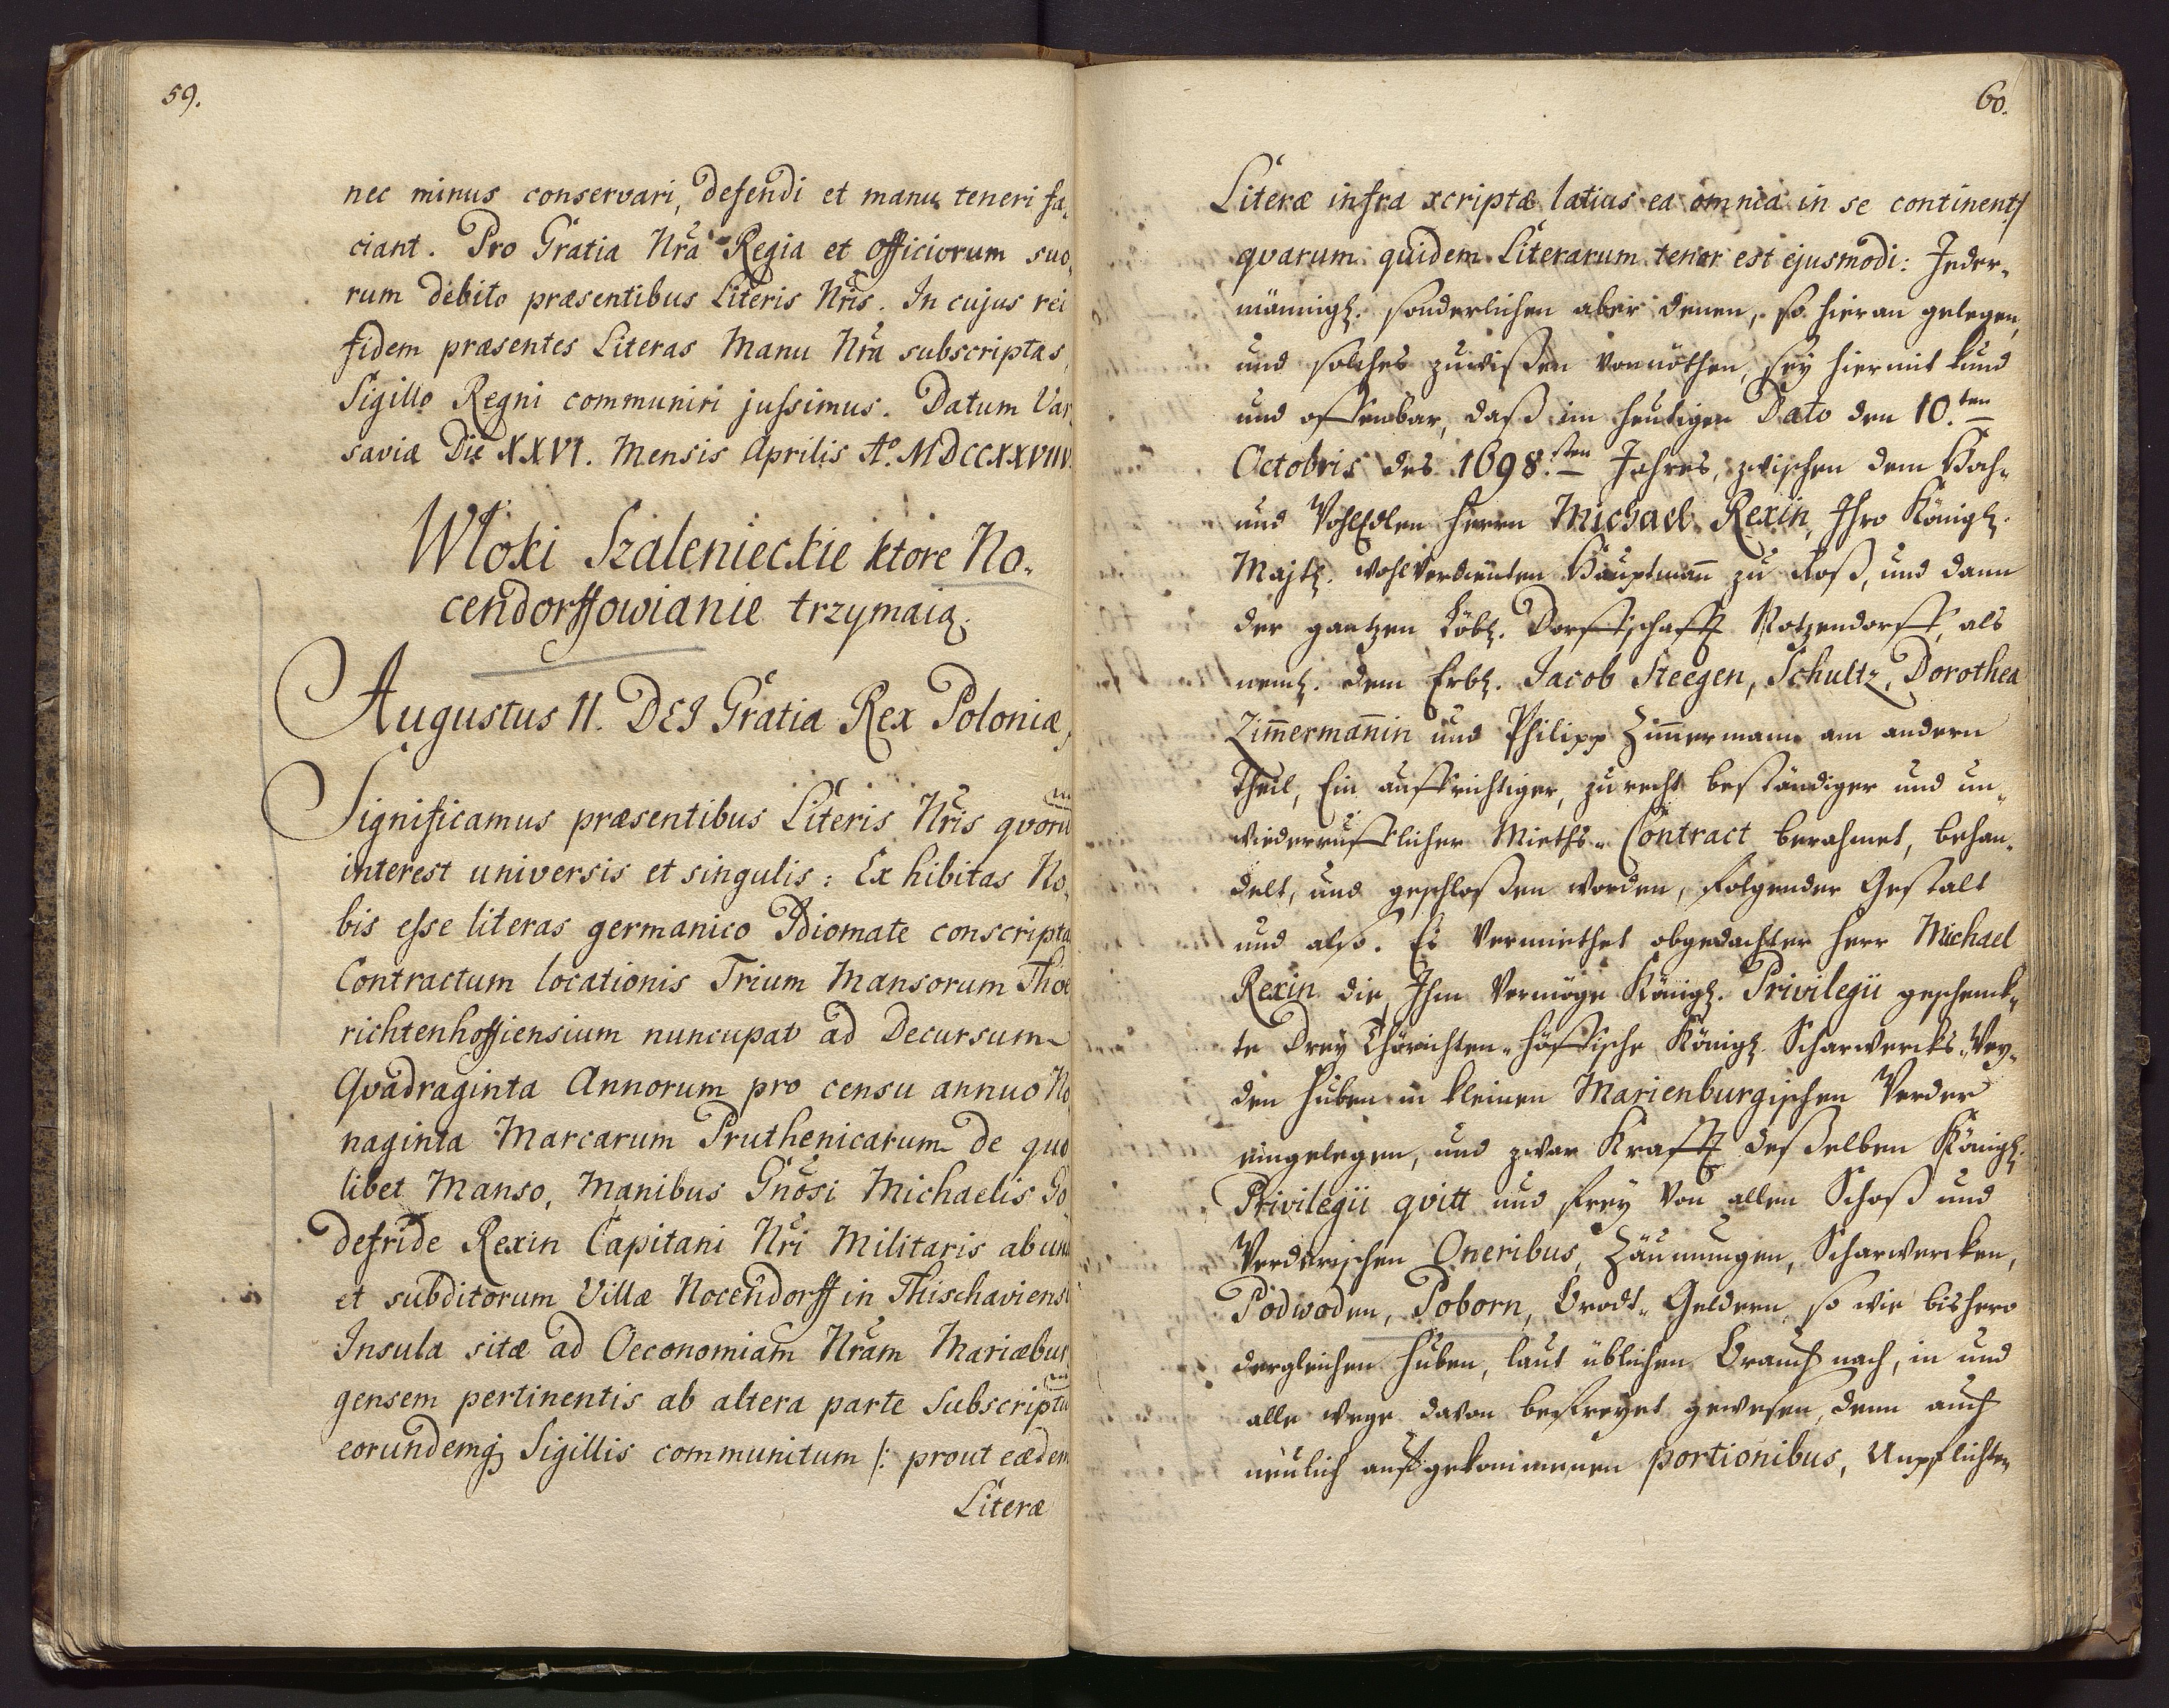 59.
nec minus conservari, defendi et manu teneri fa„
ciant. Pro Gratia Nrã Regia et Officiorum suo„
rum debito præsentibus Literis Nris. In cujus rei
fidem præsentes Literas Manu Nrã subscriptas,
Sigillo Regni communiri jussimus. Datum Var„
saviæ Die XXVI. Mensis Aprilis Aº. MDCCXXVIIII.
Włoki Szalenieckie ktore No„
cendorffowianie trzymaią.
Augustus II. DEI Gratia Rex Poloniæ,
Significamus præsentibus Literis Nris qvorũ
interest universis et singulis: Exhibitas No„
bis esse literas germanico Idiomate conscripta
Contractum locationis Trium Mansorum Thoe
richtenhoffiensium nuncupat ad Decursum
Qvadraginta Annorum pro censu annuo No
naginta Marcarum Pruthenicarum de quo
libet Manso, Manibus Gnosi Michaelis Go„
defride Rexin Capitani Nri Militaris ab una
et subditorum Villæ Nocendorff in Thischaviensi
Insula sitæ ad Oeconomiam Nram Mariæbur
gensem pertinentis ab altera parte subscriptũ
eorundemq; Sigillis communitum /: prout eædem
Literæ
60.
Literæ infra scriptæ latius ea omnia in se continent:/
qvarum quidem Literarum tenor est ejusmodi: Jeder„
männigl. sonderlichen aber denen, so hieran gelegen,
und solches zuwißen vonnöthen, sey hiermit kund
und offenbar, daß im heutigen Dato den 10.ten
Octobris des 1698.sten Jahres, zwischen dem Hoch„
und WohlEdlen Herrn Michael Rexin, Ihro Königl.
Majtl. wohlverdienten Hauptmañ zu Roß, und dann
der gantzen Löbl. Dorffschafft Notzendorff, als
neml. dem Erbl. Jacob Steegen, Schultz, Dorothea
Zim̃ermañin und Philipp Zim̃ermann am andern
Theil, Ein auffrichtiger, zu recht beständiger und un„
wiederrufflicher Mieths„Contract berahmet, behan„
delt, und geschloßen worden, folgender Gestalt
und also. Es vermiethet obgedachter Herr Michael
Rexin die Ihm vermöge Königl. Privilegii geschenck„
te Drey Thörichten„höffische Königl. Scharwercks„Wey„
den Huben in kleinen Marienburgischen Werder
eingelegen, und zwar Krafft deßelben Königl.
Privilegii qvitt und frey von allen Schoß und
Werderischen Oneribus, Zäunungen, Scharwercken,
Podwoden, Poborn, Brodt„Geldern, so wie bishero
dergleichen Huben, laut üblichen Brauch nach, in und
alle wege davon befreyet gewesen, denn auch
neulich auffgekommenen portionibus, Unpflichten